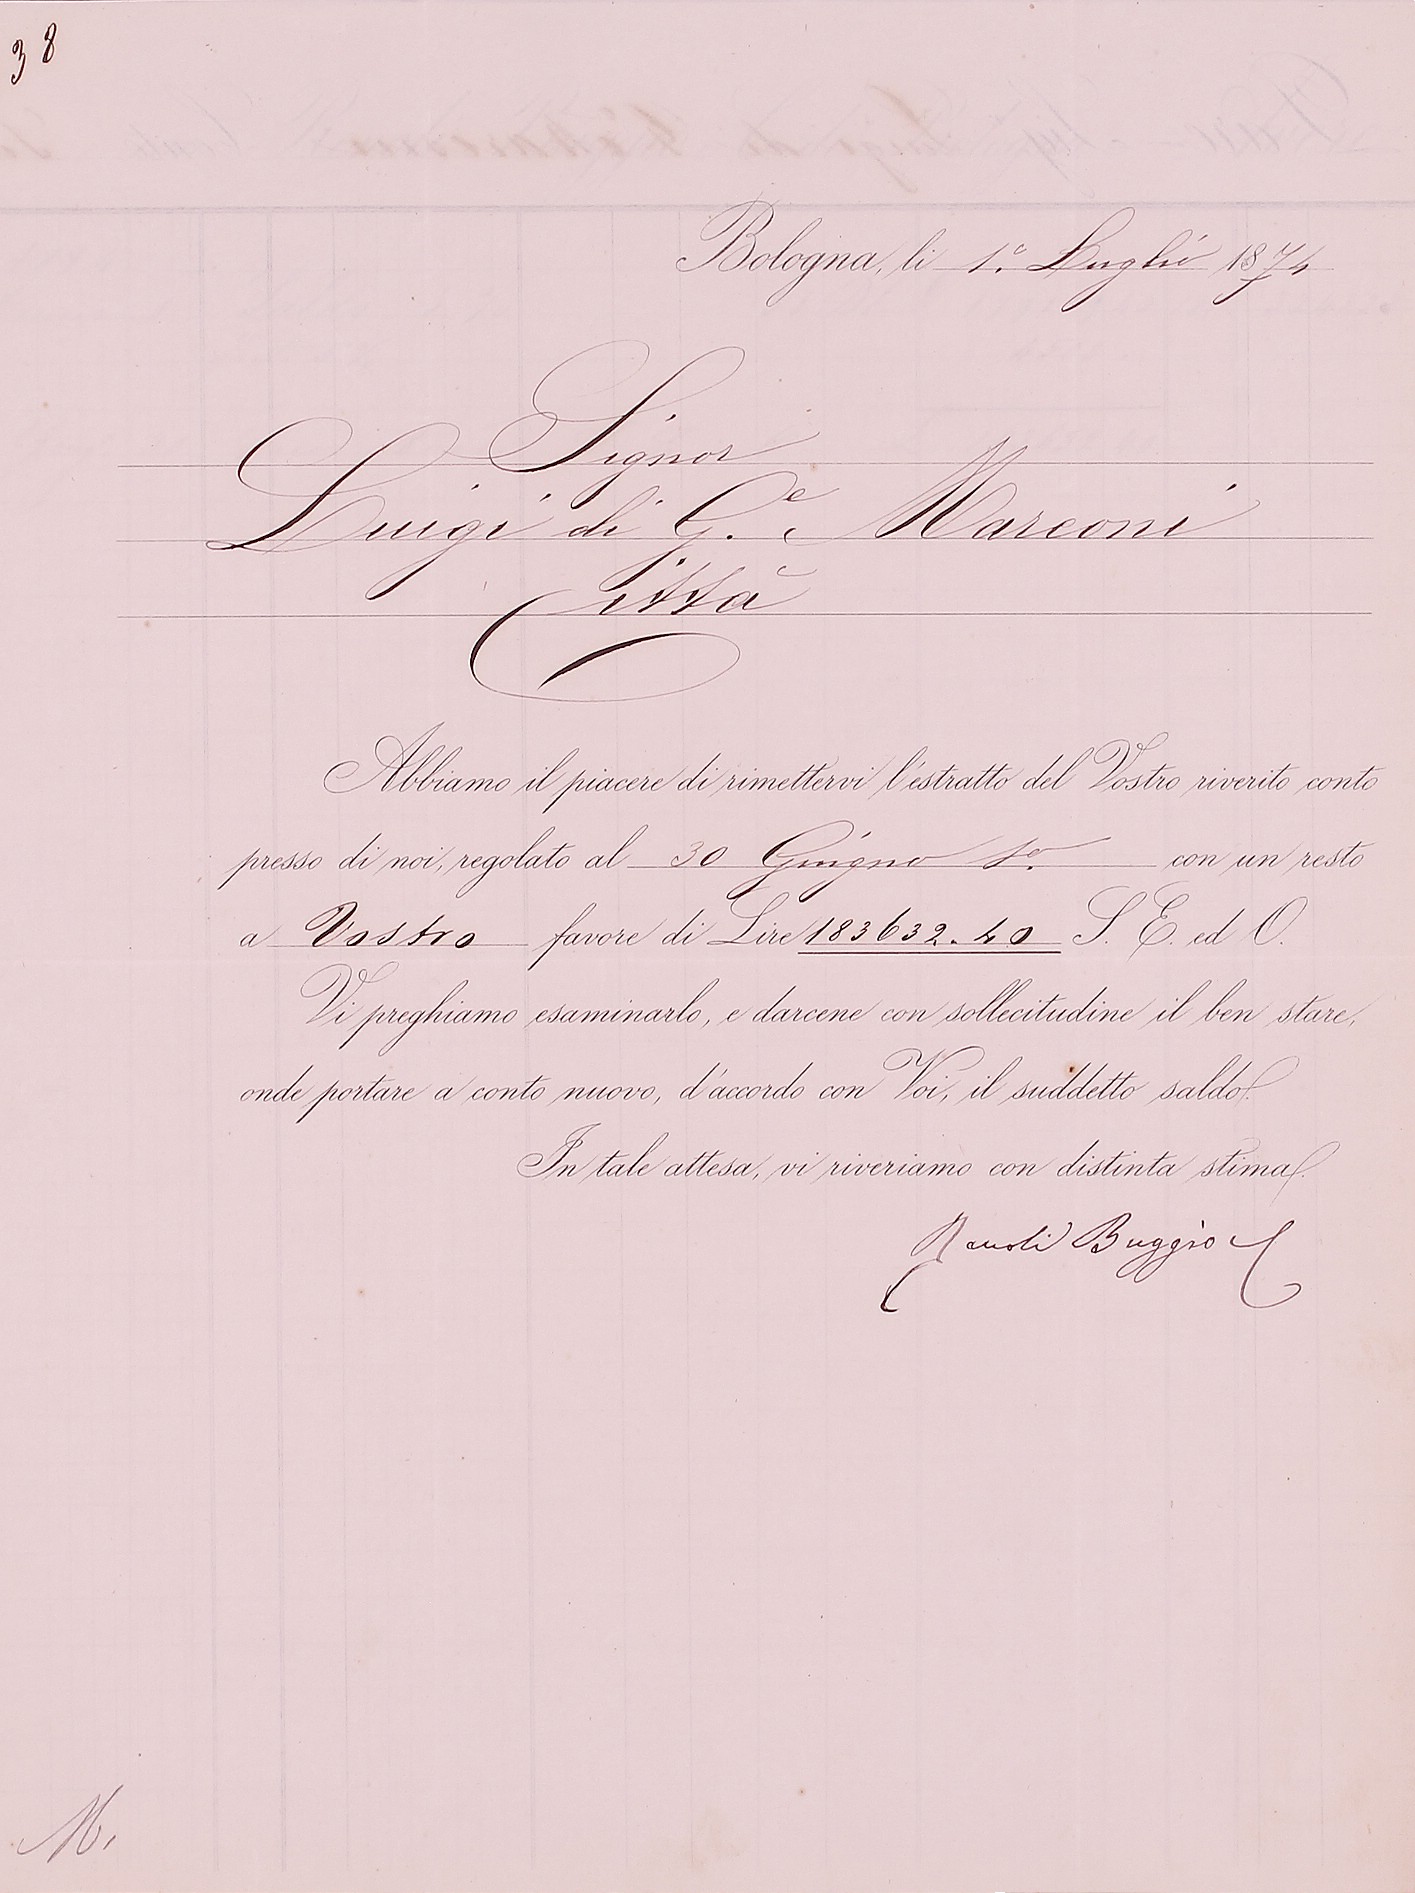 38
Bologna, li 1.° Luglio 1874
Signor
Luigi di G.e Marconi
Città
Abbiamo il piacere di rimettervi l'estratto del Vostro riverito conto
presso di noi, regolato al 30 Giugno con un resto
a Vostro favore di Lire 183632.40 S. E. ed O.
Vi preghiamo esaminarlo, e darcene con sollecitudine il ben stare,
onde portare a conto nuovo, d'accordo con Voi, il suddetto saldo.
In tale attesa, vi riveriamo con distinta stima.
Buggio
M.